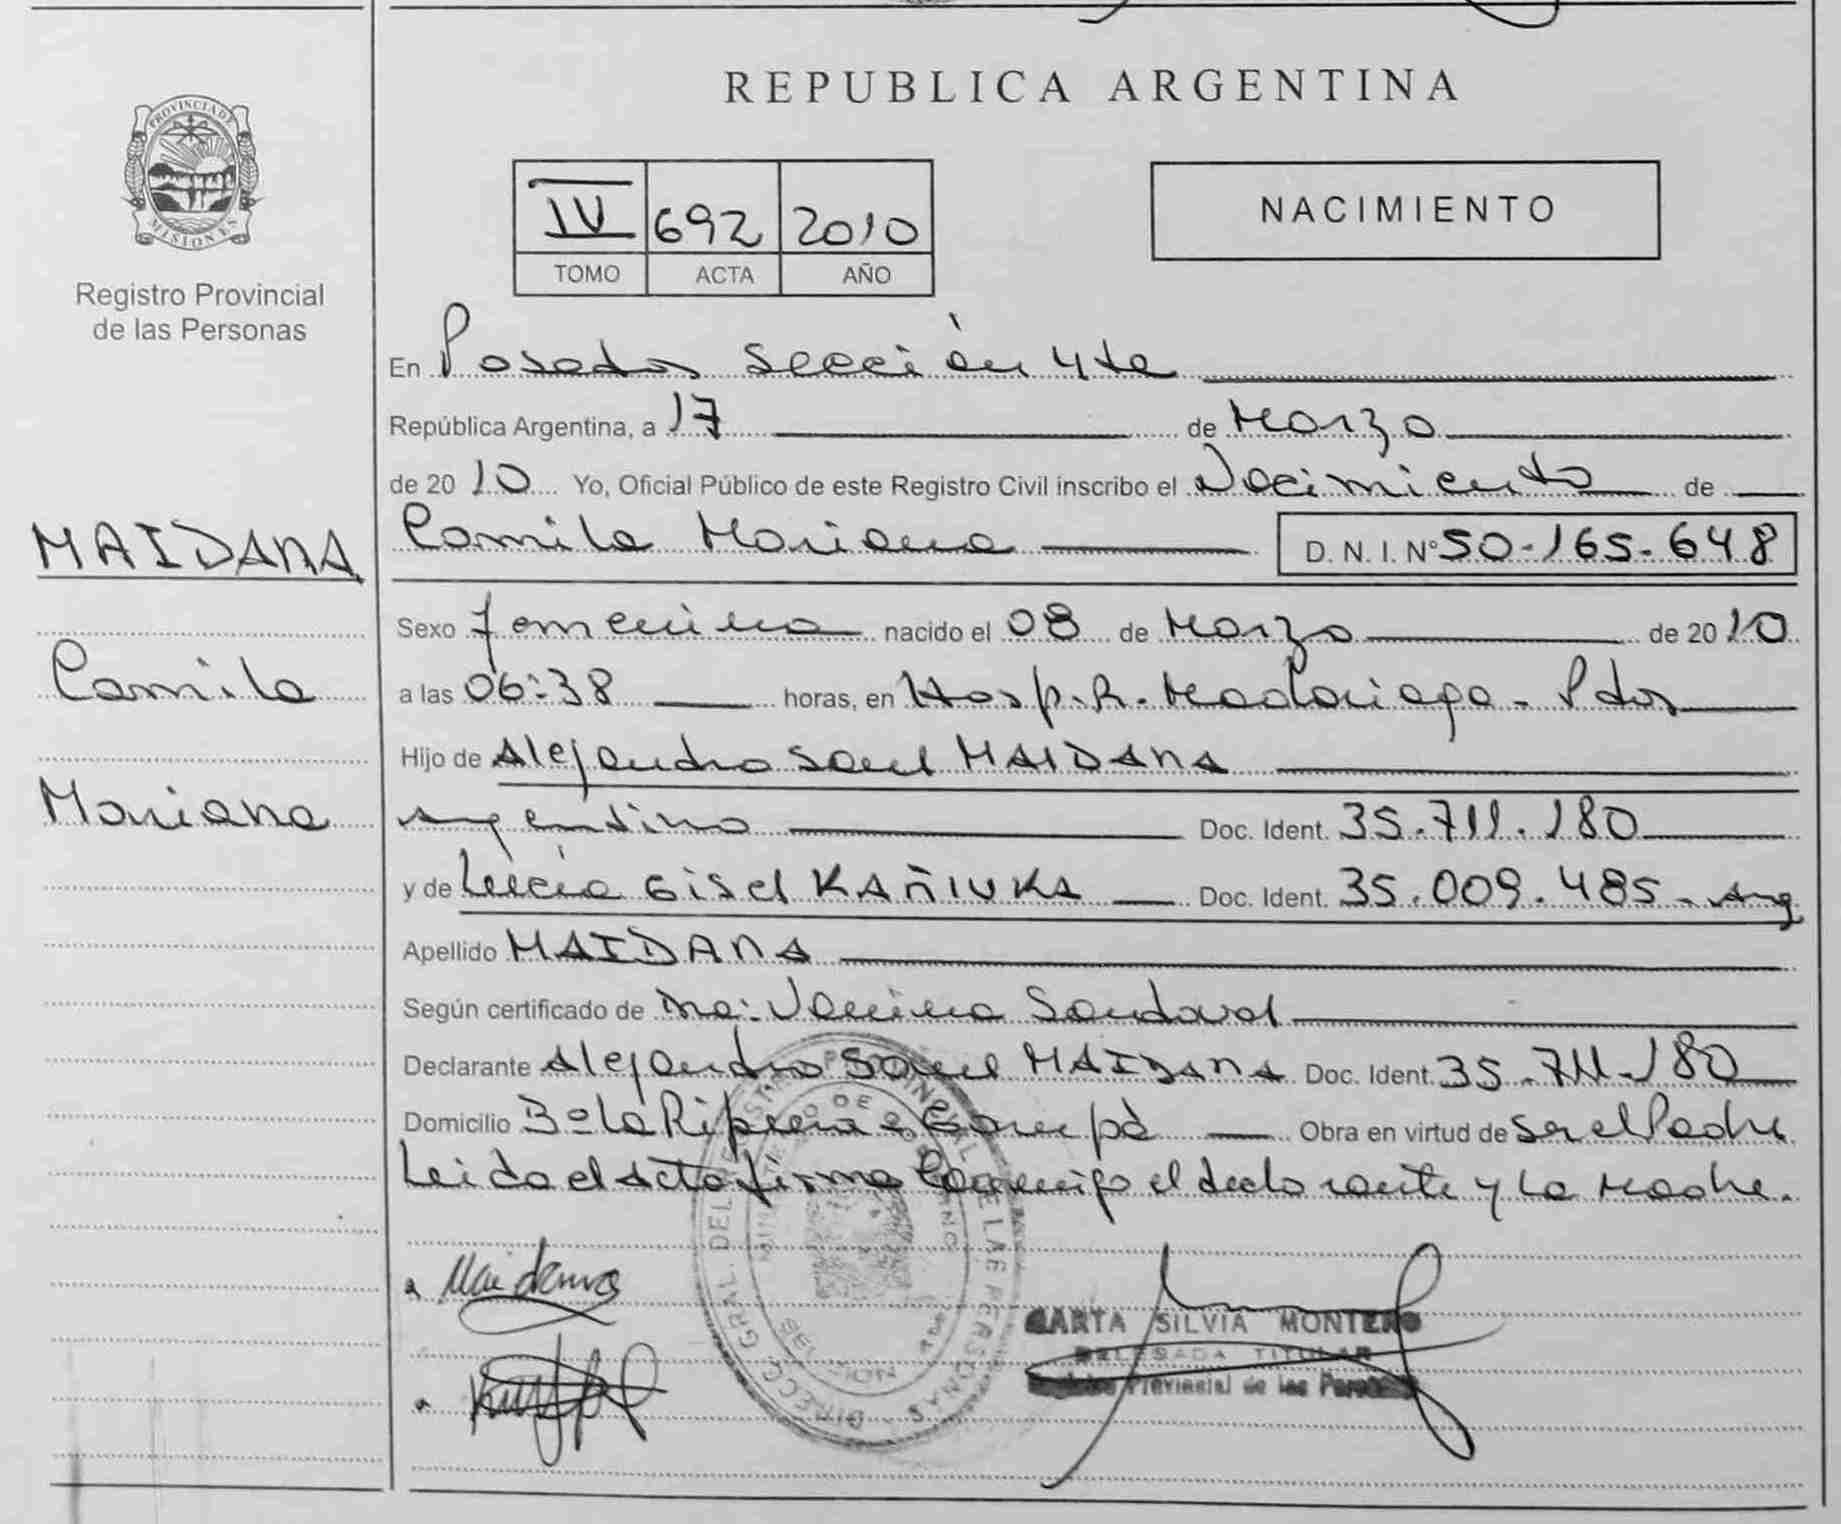 REPUBLICA ARGENTINA
PROVINCIA DE MISIONES
Registro Provincial
de las Personas
IV 692 2010
TOMO ACTA AÑO
NACIMIENTO
En Posadas Sección 4ta
República Argentina, a 17 de Marzo
de 2010 Yo, Oficial Público de este Registro Civil inscribo el Nacimiento de
MAIDANA
Camila Mariana D. N. I. Nº 50-165-648
Sexo femenino nacido el 08 de Marzo de 2010
Camila
a las 06:38 horas, en Hosp. R. Madariaga - Pdas
Hijo de Alejandro Saul MAIDANA
Mariana
argentino Doc. Ident. 35.711.180
y de Lucia Gisel KAÑIUKA Doc. Ident. 35.009.485 - Arg
Apellido MAIDANA
Según certificado de Dra: Vanina Sandoval
Declarante Alejandro Saul MAIDANA Doc. Ident. 35.711.180
Domicilio Bº La Garupá Obra en virtud de Ser el Padre
Leida el Acta firma Conmigo el declarante y La Madre.
Maidana
SILVIA MONTERO
DELEGADA TITULAR
Registro Provincial de las Personas